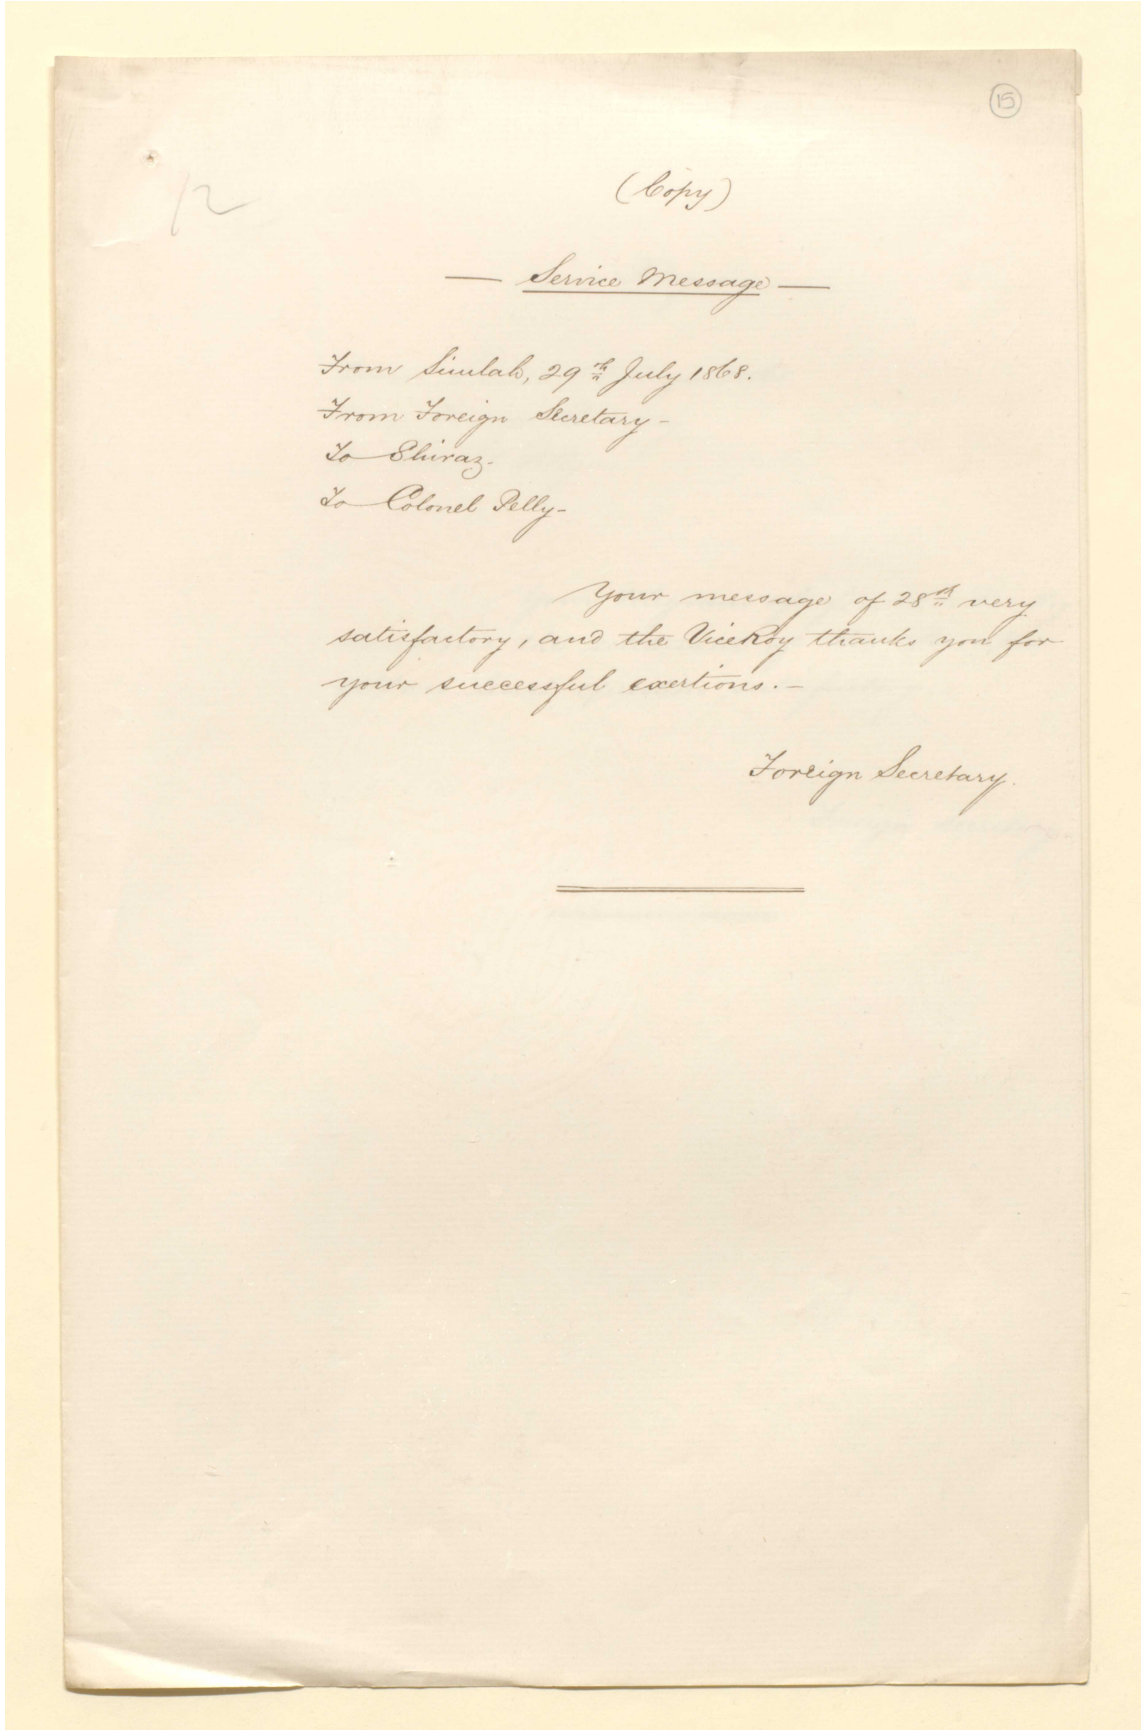 15
12
(Copy)
— Service Message —
From Simlah, 29th July 1868.
From Foreign Secretary -
To Shiraz.
To Colonel Pelly -
Your message of 28th very
satisfactory, and the ViceRoy thanks you for
your successful exertions. -
Foreign Secretary.